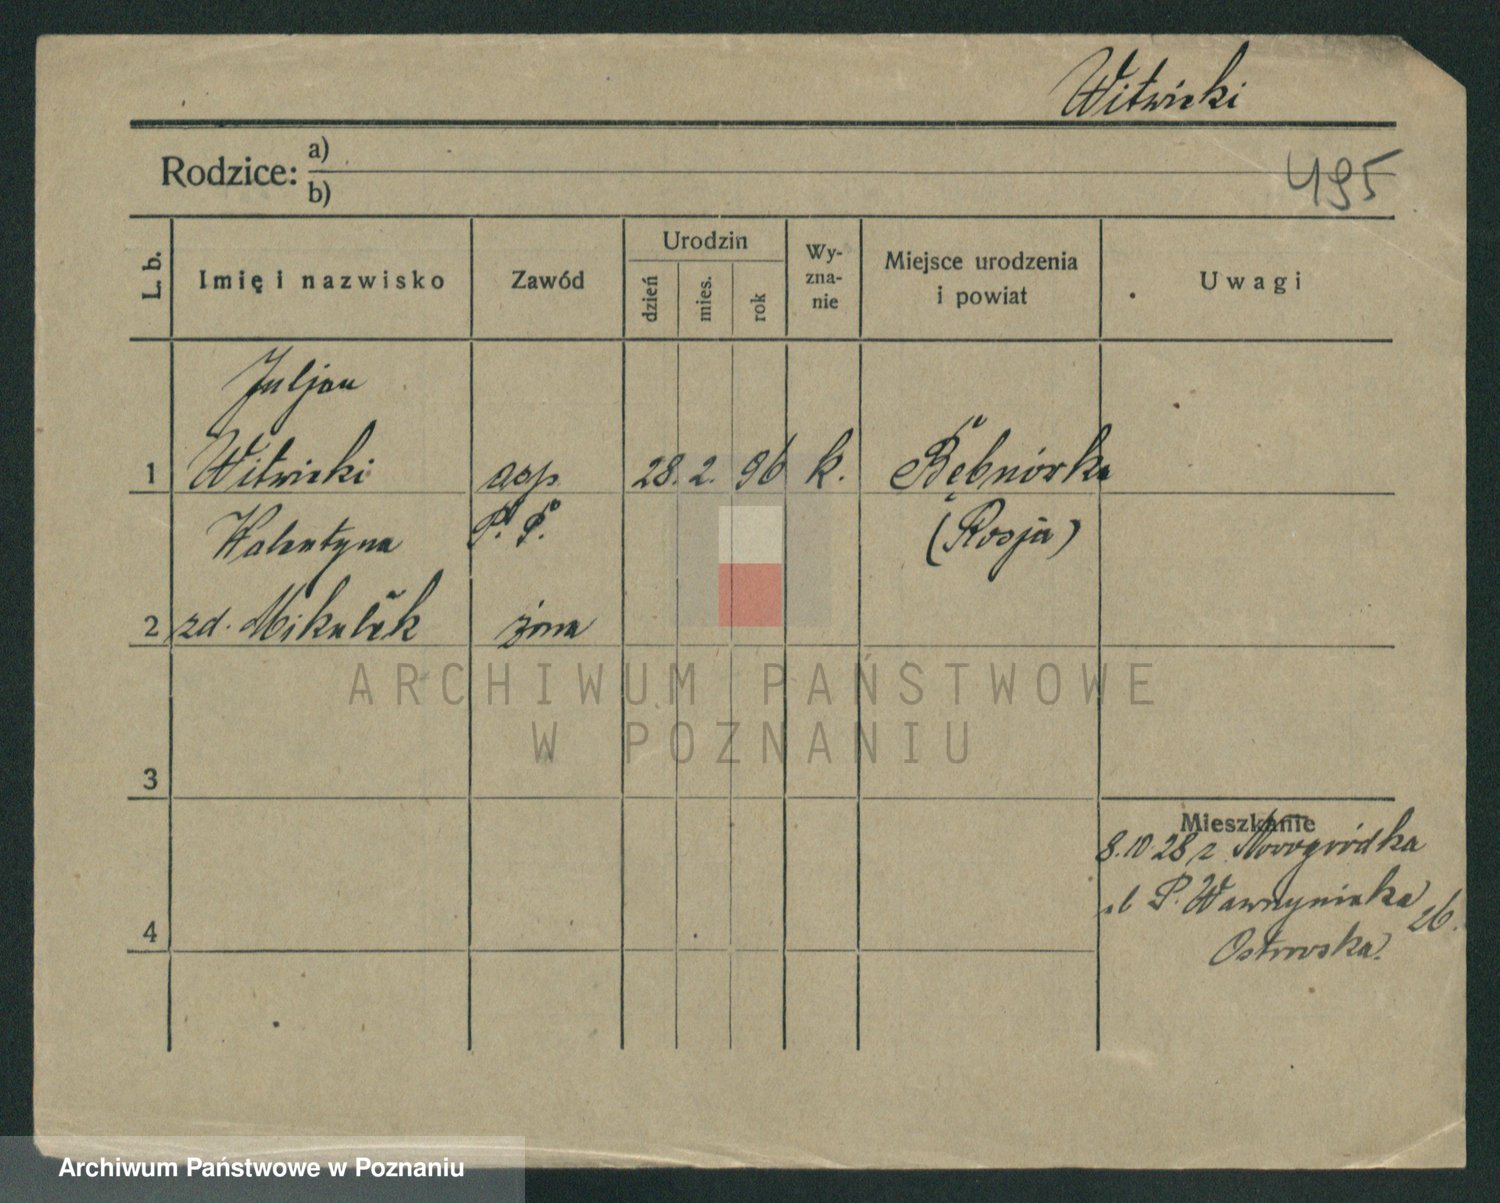 Witwicki
Rodzice: a)
b)
495
L. b.
Imię i nazwisko
Zawód
Urodzin
dzień
mies.
rok
Wy-
zna-
nie
Miejsce urodzenia
i powiat
Uwagi
Juljan
1 Witwicki asp. 28. 2. 96 k. Bębnówka
P. P. (Rosja)
Walentyna
2 zd. Mikulek żona
3
4
Mieszkanie
8.10.28 z Nowogródka
ul P. Wawrzyniaka 26.
Ostrowska
ARCHIWUM PAŃSTWOWE
W POZNANIU
Archiwum Państwowe w Poznaniu